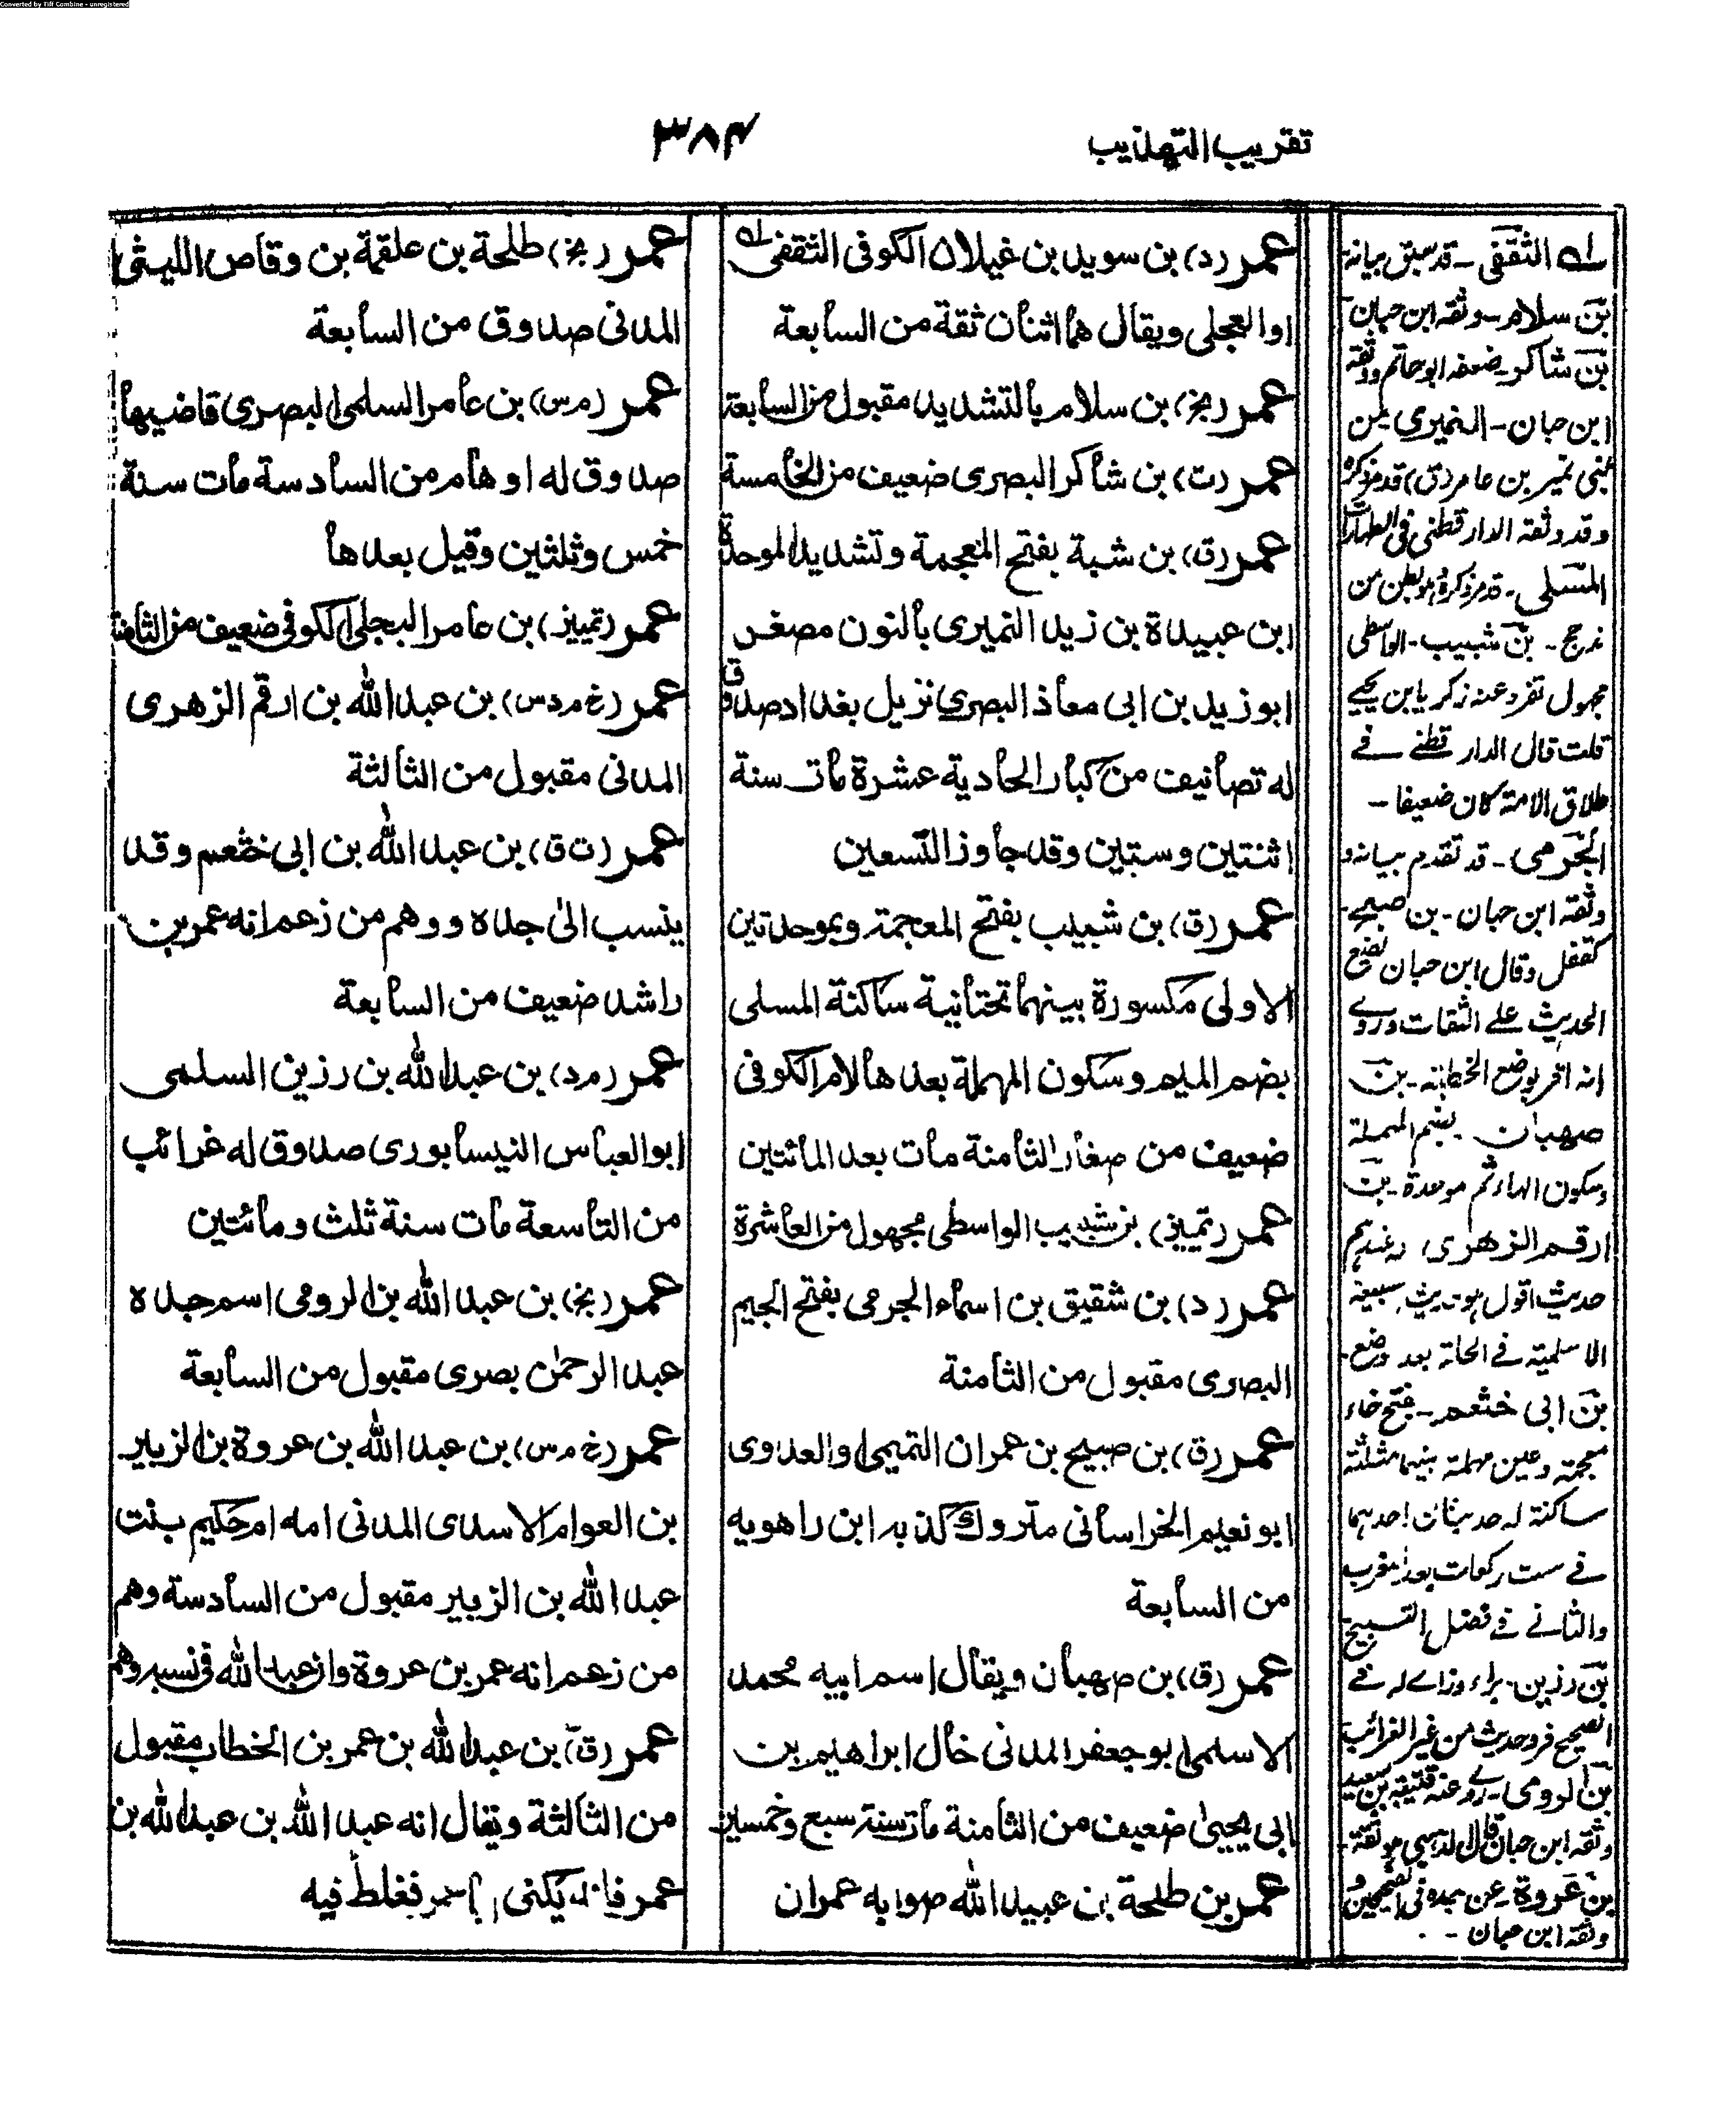 Converted by Tiff Combine - unregistered
تقريب التهذيب
٣٨٤
عمر (د) بن سويد بن غيلان الكوفى الثقفى
او العجلى ويقال هما اثنان ثقة من السابعة
عمر (بخ) بن سلام بالتشديد مقبول من السابعة
عمر (ت) بن شاكر البصرى ضعيف من الخامسة
عمر (ق) بن شبة بفتح المعجمة وتشديد الموحدة
ابن عبيدة بن زيد النميرى بالنون مصغر
ابو زيد بن ابى معاذ البصرى نزيل بغداد صدوق
له تصانيف من كبار الحادية عشرة مات سنة
اثنتين وستين وقد جاوز التسعين
عمر (ق) بن شبيب بفتح المعجمة وبموحدتين
الاولى مكسورة بينهما تحتانية ساكنة المسلى
بضم الميم وسكون المهملة بعدها لام الكوفى
ضعيف من صغار الثامنة مات بعد المائتين
عمر (تمييز) بن شبيب الواسطى مجهول من العاشرة
عمر (د) بن شقيق بن اسماء الجرمى بفتح الجيم
البصرى مقبول من الثامنة
عمر (ق) بن صبيح بن عمران التميمى او العدوى
ابو نعيم الخراسانى متروك كذبه ابن راهويه
من السابعة
عمر (ق) بن صهبان ويقال اسم ابيه محمد
الاسلمى ابو جعفر المدنى خال ابراهيم بن
ابى يحيىٰ ضعيف من الثامنة مات سنة سبع وخمسين
عمر بن طلحة بن عبيد الله صوابه عمران
عمر (بخ) طلحة بن علقمة بن وقاص الليثى
المدنى صدوق من السابعة
عمر (م س) بن عامر السلمى البصرى قاضيها
صدوق له اوهام من السادسة مات سنة
خمس وثلثين وقيل بعدها
عمر (تمييز) بن عامر البجلى الكوفى ضعيف من الثامنة
عمر (خ م د س) بن عبد الله بن ارقم الزهرى
المدنى مقبول من الثالثة
عمر (ت ق) بن عبد الله بن ابى خثعم وقد
ينسب الىٰ جده ووهم من زعم انه عمر بن
راشد ضعيف من السابعة
عمر (م د) بن عبد الله بن رزين السلمى
ابو العباس النيسابورى صدوق له غرائب
من التاسعة مات سنة ثلث ومائتين
عمر (بخ) بن عبد الله بن الرومى اسم جده
عبد الرحمٰن بصرى مقبول من السابعة
عمر (خ م س) بن عبد الله بن عروة بن الزبير
بن العوام الاسدى المدنى امه ام حكيم بنت
عبد الله بن الزبير مقبول من السادسة وهم
من زعم انه عمر بن عروة وان عبد الله فى نسبه وهم
عمر (ق) بن عبد الله بن عمر بن الخطاب مقبول
من الثالثة ويقال انه عبد الله بن عبد الله بن
عمر فانه يكنى ابا عمر فغلط فيه
الثقفى - قد سبق بيانه
بن سلام - وثقه ابن حبان
بن شاكر - ضعفه ابو حاتم ووثقه
ابن حبان - النميرى - من
بنى نمير بن عامر (ق) قد مر ذكره
وقد وثقه الدارقطنى فى
المسلى - قد مر ذكره بطن من
مذحج - بن شبيب - الواسطى
مجهول تفرد عنه زكريا بن يحيى
قلت قال الدار قطنے فے
طلاق الامة كان ضعيفا -
الجرمى - قد تقدم بيانه و
وثقه ابن حبان - بن صبيح -
وقال ابن حبان يضع
الحديث علے الثقات وروى
انه اقر بوضع الخطبة - بن
صهبان - بضم المهملة
وسكون الهاء ثم موحدة - بن
ارقم الزهرى
حديث اقول
الاسلمية فے بعد وضع -
بن ابى خثعم - بفتح خاء
معجمة وعين مهملة بينهما مثلثة
ساكنة له حديثان احدهما
فے ست ركعات بعد المغرب
والثانے فے فضل التسبيح
بن رزين - براء وزاے له فے
الصحيح فرد حديث من غير الغرائب
بن الرومى - روے عنه قتيبة بن سعيد
وثقه ابن حبان قال الذهبى ثقة -
بن عروة - عن جده فى الصحيحين و
وثقه ابن حبان -